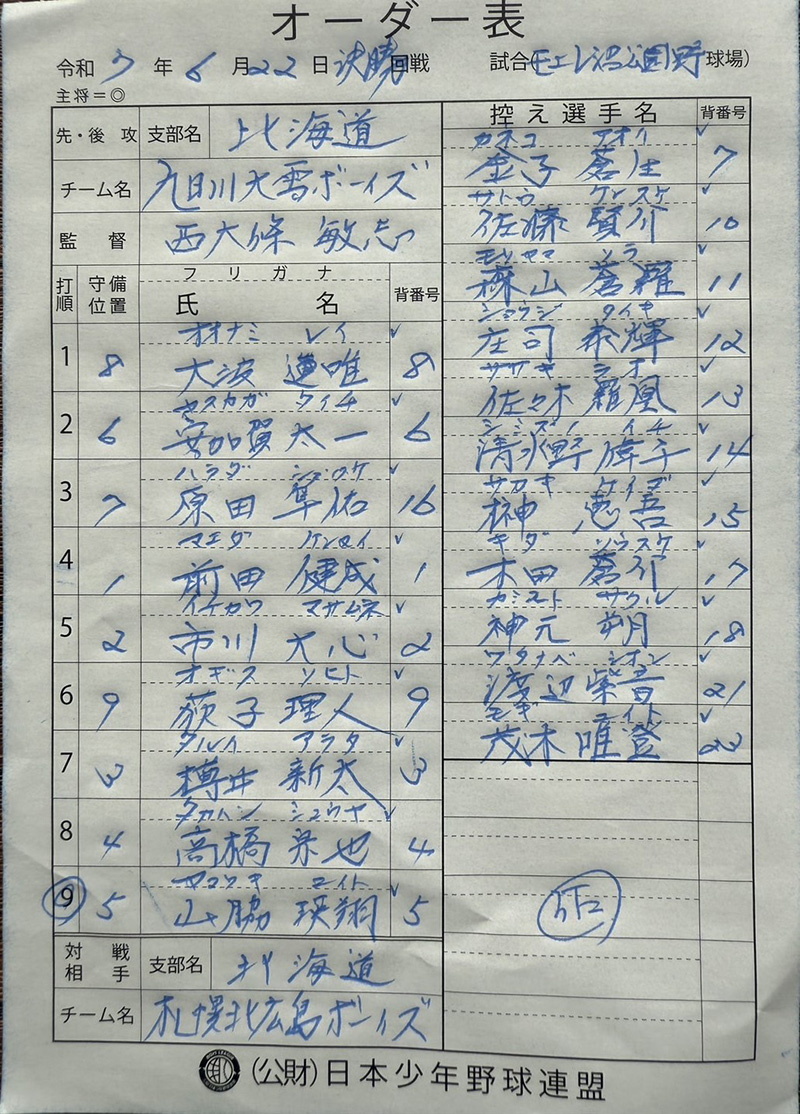 オーダー表
令和 7 年 6 月 22 日 決勝 回戦 試合(モエレ沼公園野球場)
主将=◎
先・後攻 支部名 北海道
チーム名 旭川大雪ボーイズ
監督 西大條 敏志
打順 守備位置 フリガナ 氏名 背番号
オオナミ レイ
1 8 大波 蓮唯 8
ヤスカガ タイチ
2 6 安加賀 太一 6
ハラダ シュンスケ
3 7 原田 隼佑 16
マエダ ケンセイ
4 1 前田 健成 1
イチカワ マサムネ
5 2 市川 大心 2
オギス リヒト
6 9 荻子 理人 9
タルイ アラタ
7 3 樽井 新太 3
タカハシ シュウヤ
8 4 高橋 柊也 4
ヤマワキ エイト
9 5 山脇 瑛翔 5
対戦相手 支部名 北海道
チーム名 札幌北広島ボーイズ
控え選手名 背番号
カネコ アオイ
金子 蒼生 7
サトウ ケンスケ
佐藤 賢介 10
モリヤマ ソラ
森山 蒼羅 11
ショウジ タイキ
庄司 泰輝 12
ササキ シオ
佐々木 羅凰 13
シミズノ イチ
清水野 偉千 14
サカキ ケイゴ
榊 恵吾 15
キダ ソウスケ
木田 蒼介 17
カミモト サクル
神元 朔 18
ワタナベ シオン
渡辺 紫音 21
モギ ユイト
茂木 唯登 23
(公財)日本少年野球連盟